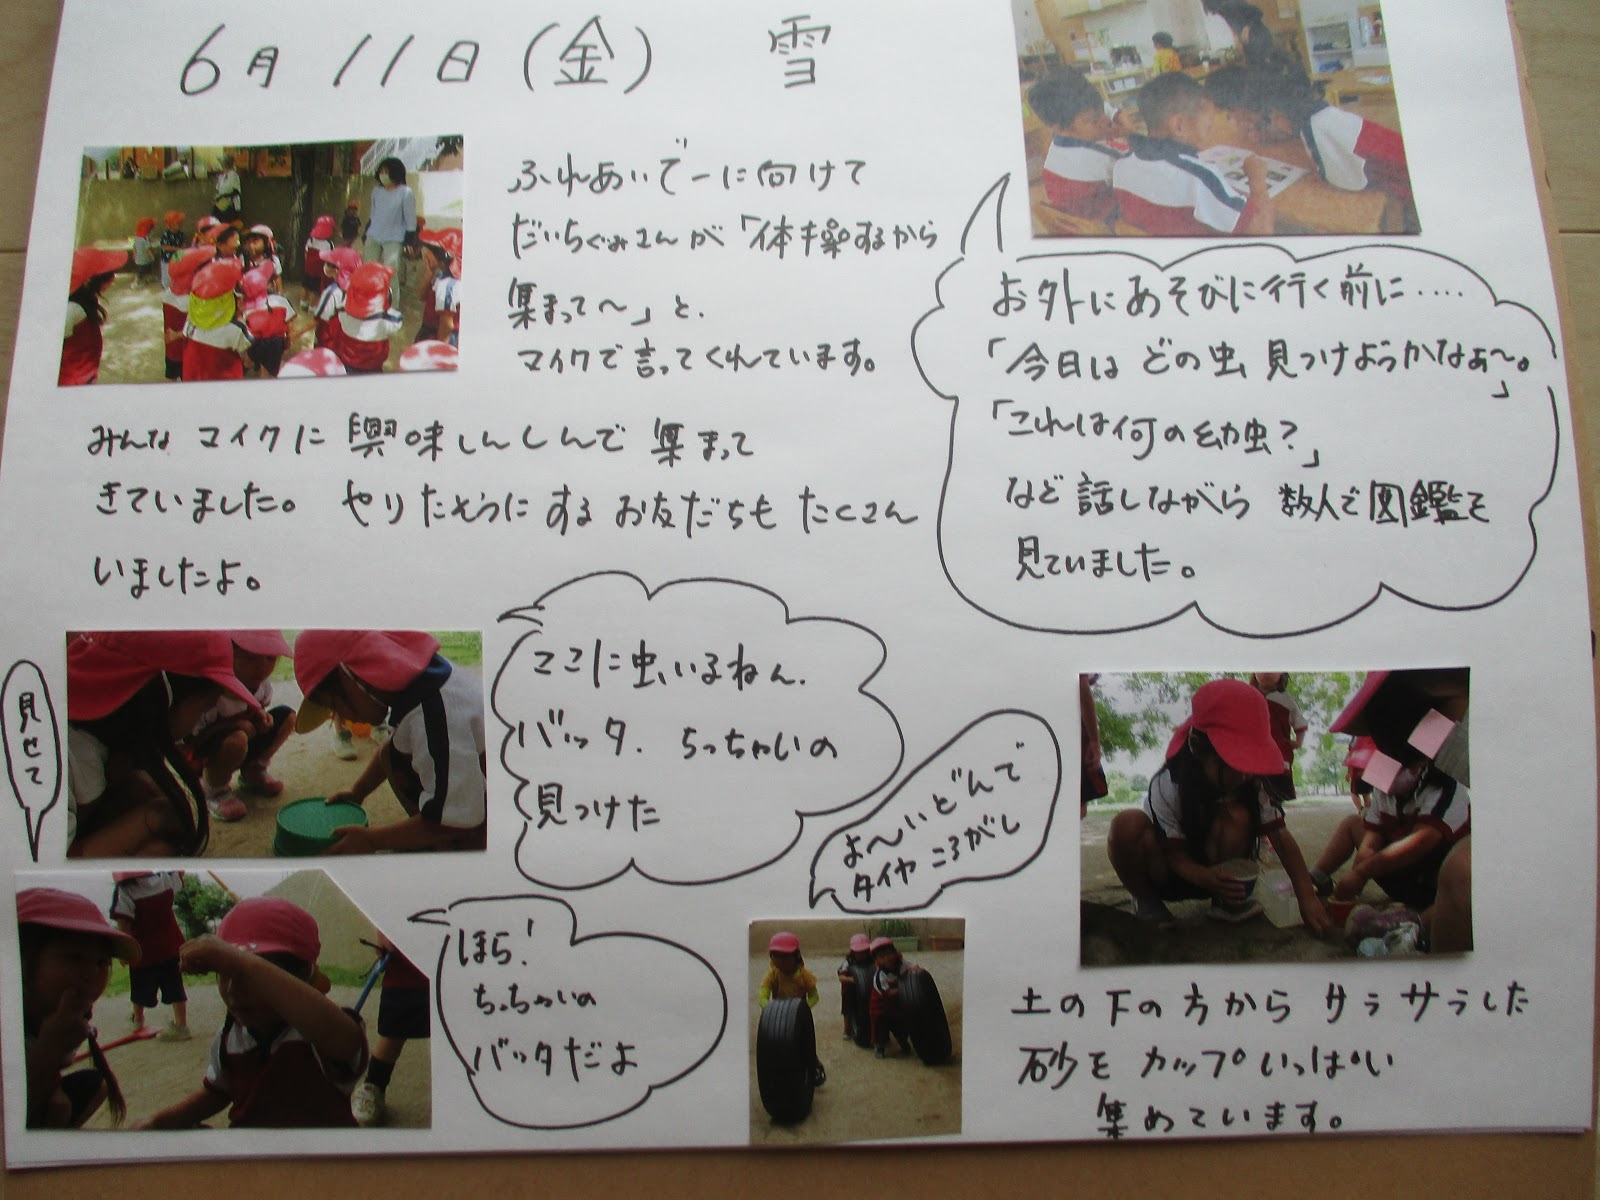 6月11日(金) 雪
ふれあいでーに向けて
だいちぐみさんが「体操するから
集まって〜」と、
マイクで言ってくれています。
みんな マイクに 興味しんしんで 集まって
きていました。 やりたそうにする お友だちも たくさん
いましたよ。
お外にあそびに行く前に‥‥
「今日は どの虫 見つけようかなぁ〜。」
「これは何の幼虫?」
など 話しながら 数人で図鑑を
見ていました。
見せて
ここに虫いるねん.
バッタ. ちっちゃいの
見つけた
ほら!
ちっちゃいの
バッタだよ
よ〜いどんで
タイヤ ころがし
土の下の方から サラサラした
砂を カップいっぱい
集めています。